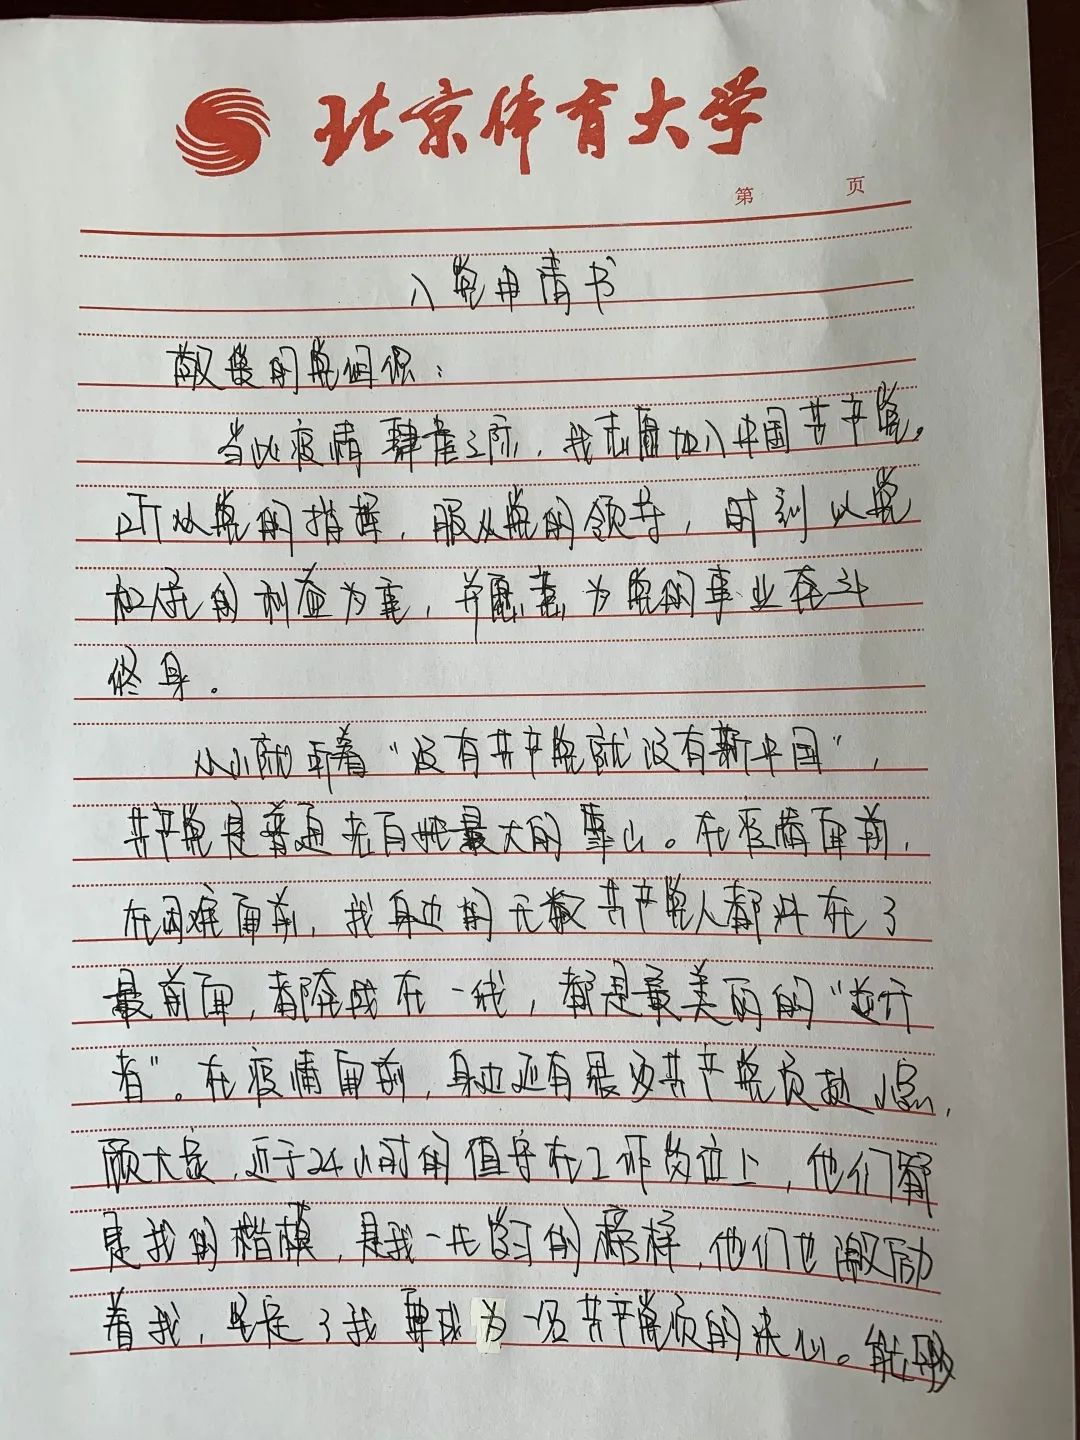 北京体育大学
第 页
入党申请书
敬爱的党组织：
当此疫情肆虐之际，我志愿加入中国共产党，
听从党的指挥，服从党的领导，时刻以党
和人民的利益为重，并愿意为党的事业奋斗
终身。
从小就听着“没有共产党就没有新中国”，
共产党是普通老百姓最大的靠山。在疫情面前，
在困难面前，我身边的无数共产党人都冲在了
最前面，都奋战在一线，都是最美丽的“逆行
者”。在疫情面前，身边还有很多共产党员舍小家，
顾大家，近于24小时的值守在工作岗位上，他们都
是我的楷模，是我一生学习的榜样，他们也激励
着我，坚定了我要成为一名共产党员的决心。能够